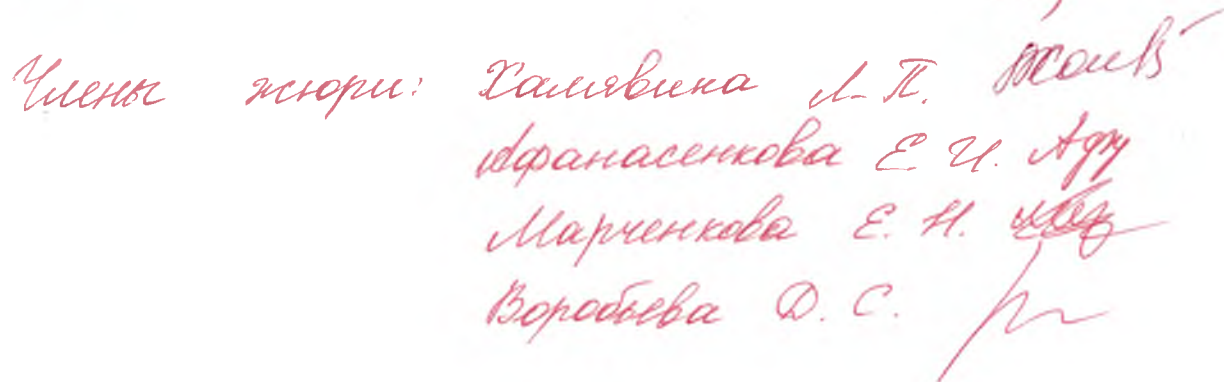 Члены жюри: Халявина Л. П.
Афанасенкова Е. И.
Марченкова Е. Н.
Воробьева Д. С.